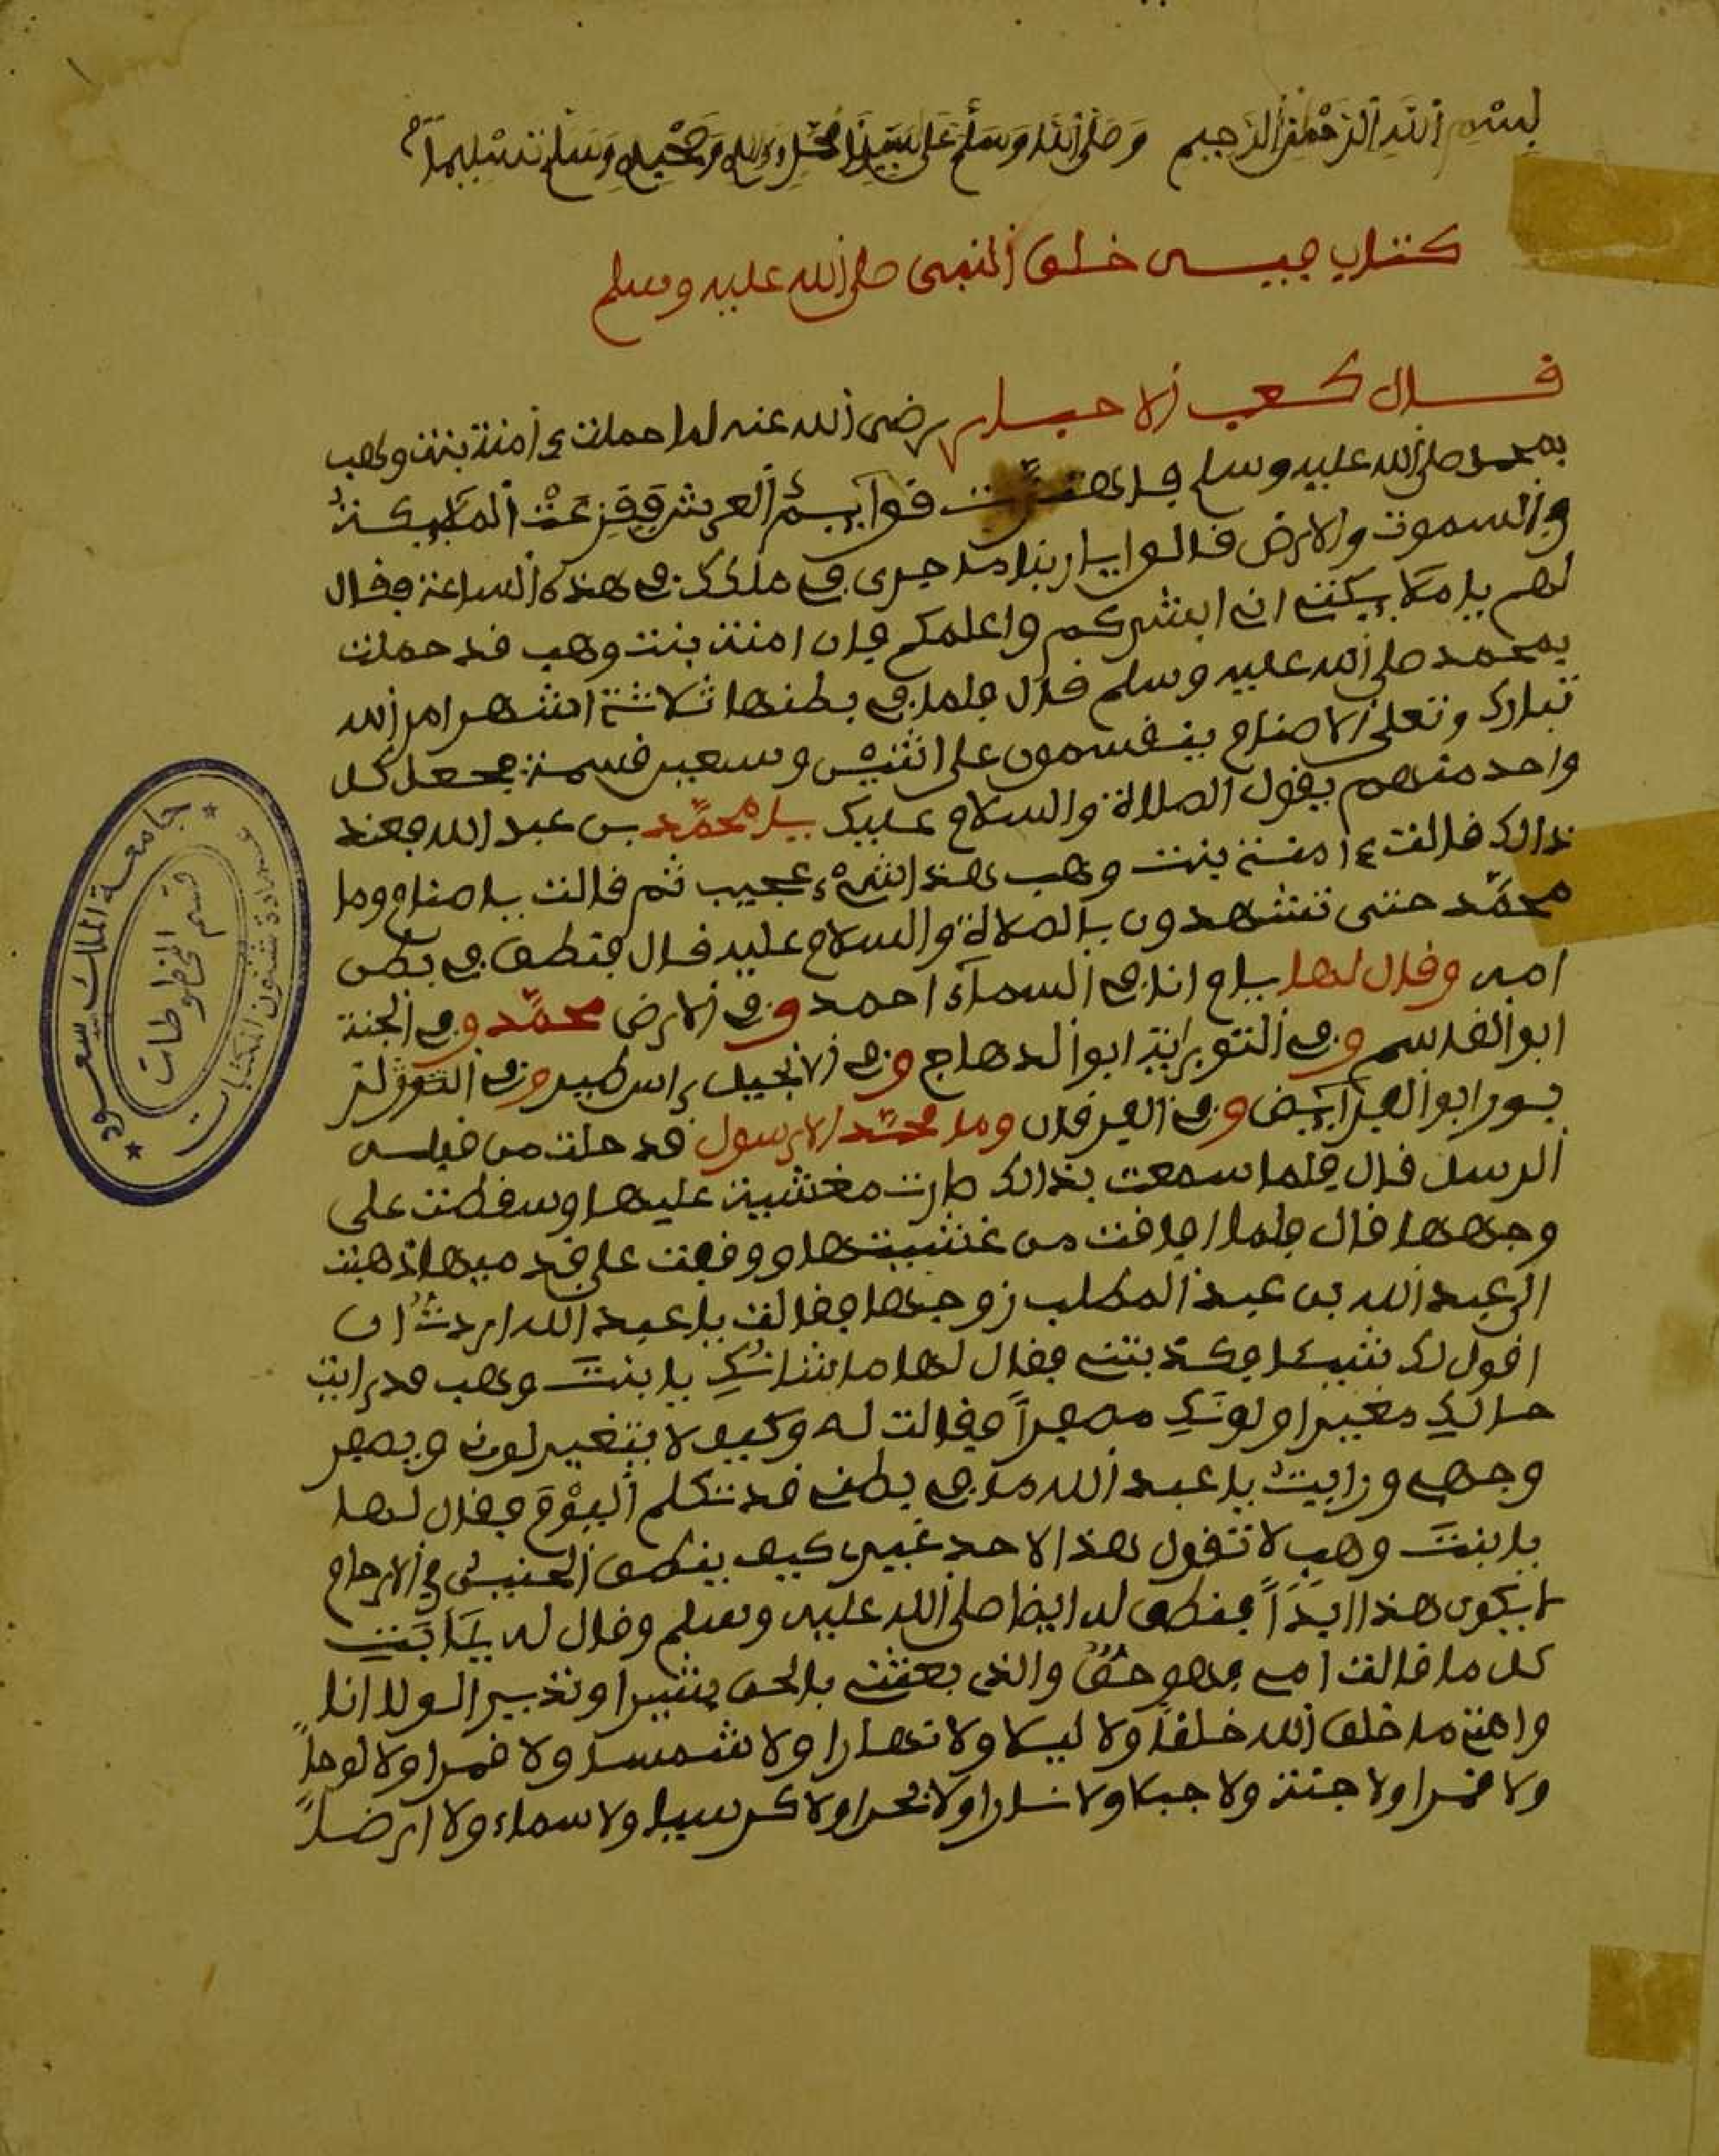 بسم الله الرحمن الرحيم وصلى الله وسلم على سيدنا محمد وءاله وصحبه وسلم تسليما
كتاب فيه خلق النبي صلى الله عليه وسلم
قال كعب الاحبار رضي الله عنه لما حملت امنة بنت وهب
بمحمد صلى الله عليه وسلم فاهتزت قوآيم العرش وفزعت الملايكة
والسموت والارض فالوا يا ربنا ما جرى في ملكك في هذه الساعة وفال
لهم يا ملايكتي اني ابشركم واعلمكم فإن امنة بنت وهب قد حملت
بمحمد صلى الله عليه وسلم قال فلما في بطنها ثلاثة اشهر امر الله
تبارك وتعلى الاصنام ينفسمون على اثنين وسبعين قسمة فجعل كل
واحد منهم يقول الصلاة والسلام عليك يا محمد بن عبد الله فعند
ذالك قالت امنة بنت وهب هذا شيء عجيب ثم قالت يا اصنام وما
محمد حتى تشهدون بالصلاة والسلام عليه قال فنطق في بطن
امه وقال لها يام انا في السمآء احمد وفي الارض محمد وفي الجنة
ابو القاسم وفي التورية ابو الدهاج وفي الانجيل وفي
بور ابو الفرايض وفي الفرقان وما محمد الا رسول قد خلت من قبله
الرسل قال فلما سمعت بذالك صارت مغشية عليها وسقطت على
وجهها قال فلما افاقت من غشيتها ووقفت على قدميها ذهبت
الى عبد الله بن عبد المطلب زوجها فقالت يا عبد الله اردت ان
اقول لك شيئا فقال لها ما شانك يا بنت وهب قد رايت
حالك مغيرا ولونك مصفرا فقالت له وكيف لا يتغير لوني ويصفر
وجهي ورايت يا عبد الله ما في بطني قد تكلم اليوم فقال لها
يا بنت وهب لا تقول هذا لاحد غيري كيف ينطق الجنين في الارحام
لا يكون هذا ابدا فنطق له ايضا صلى الله عليه وسلم وقال له يا ابت
كل ما قالت امي فهو حق والذي بعثني بالحق بشيرا ونذيرا لولا انا
وامتي ما خلق الله خلقا ولا ليلا ولا نهارا ولا شمسا ولا قمرا ولا لوحا
ولا قمرا ولا جنة ولا جبلا ولا نارا ولا بحرا ولا كرسيا ولا سماء ولا ارضا
جامعة الملك سعود
عمادة شئون المكتبات
قسم المخطوطات